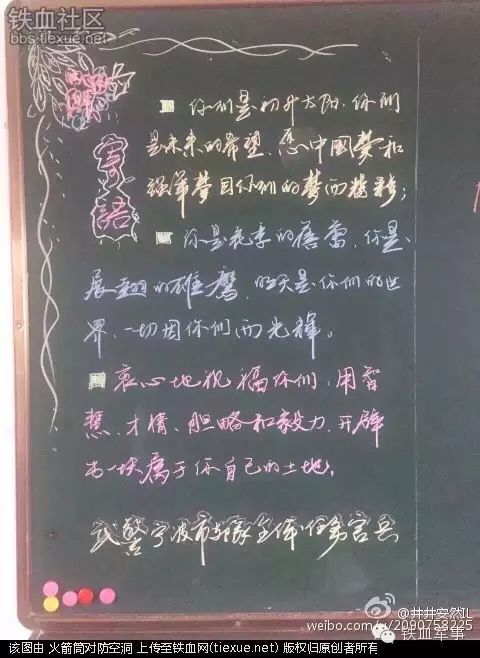 铁血社区
bbs.tiexue.net
寄语
你们是初升太阳,你们
是未来的希望,愿中国梦和
强军梦因你们的梦而精彩;
你是花季的蓓蕾,你是
展翅的雄鹰,明天是你们的世
界,一切因你们而光辉。
衷心地祝福你们,用智
慧、才情、胆略和毅力,开辟
出一块属于你自己的土地,
武警宁波市支队全体官兵
@井井安然IL
weibo.com/u/2090758225
铁血军事
该图由 火箭筒对防空洞 上传至铁血网(tiexue.net) 版权归原创者所有